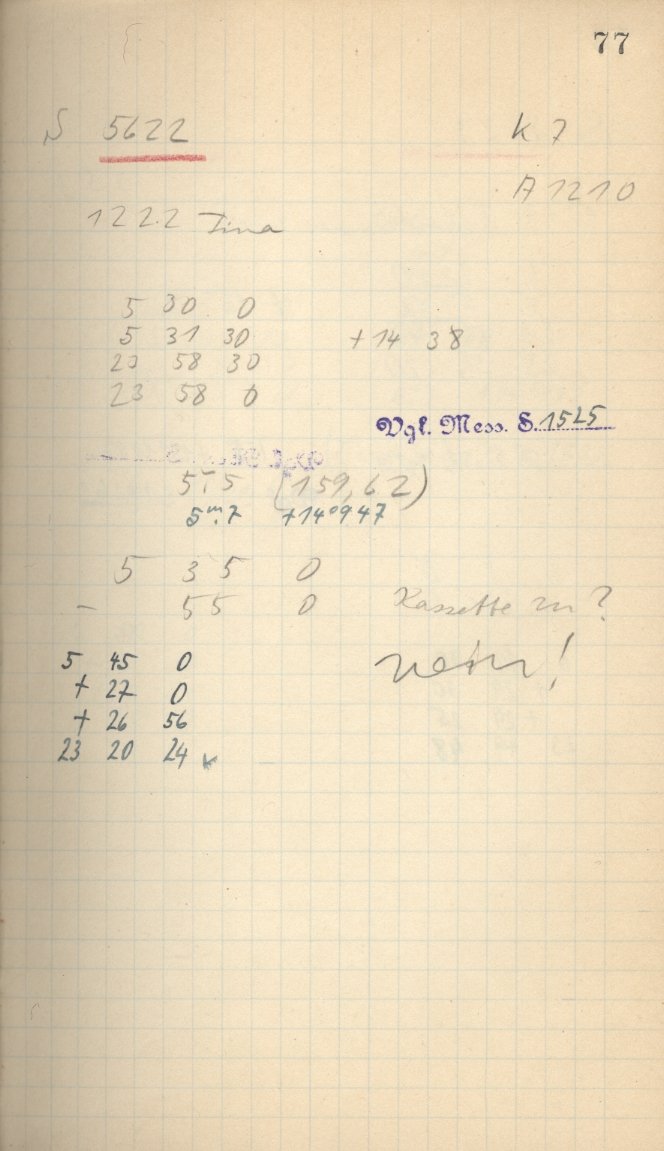 77
S 5622 K 7
A 1210
1222 Tina
5 30 0
5 31 30 +14 38
23 58 30
23 58 0
Vgl. Mess. S. 1525
5m.5 (159,62)
5m.7 +14°947
5 35 0
- 55 0 Kassette zu?
5 45 0 nein!
+ 27 0
+ 26 56
23 20 24 K